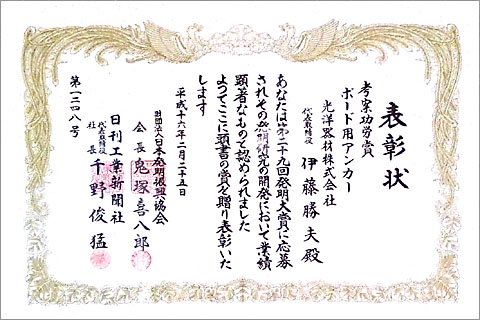 表彰状
考案功労賞
ボード用アンカー
光洋器材株式会社
代表取締役 伊藤勝夫殿
あなたは第二十九回発明大賞に応募
されその発明研究の開発において業績
顕著なもので認められました
よつてここに頭書の賞を贈り表彰いた
します
平成十六年二月二十五日
財団法人日本発明振興協会
会長鬼塚喜八郎
日刊工業新聞社
代表取締役
社長 千野俊猛
第一二四八号